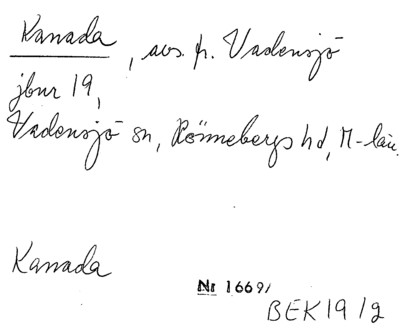 Kanada, avs. fr. Vadensjö
jbnr 19,
Vadensjö sn, Rönnebergs hd, M-län.
Kanada
Nr 1669/
BEK 19/2